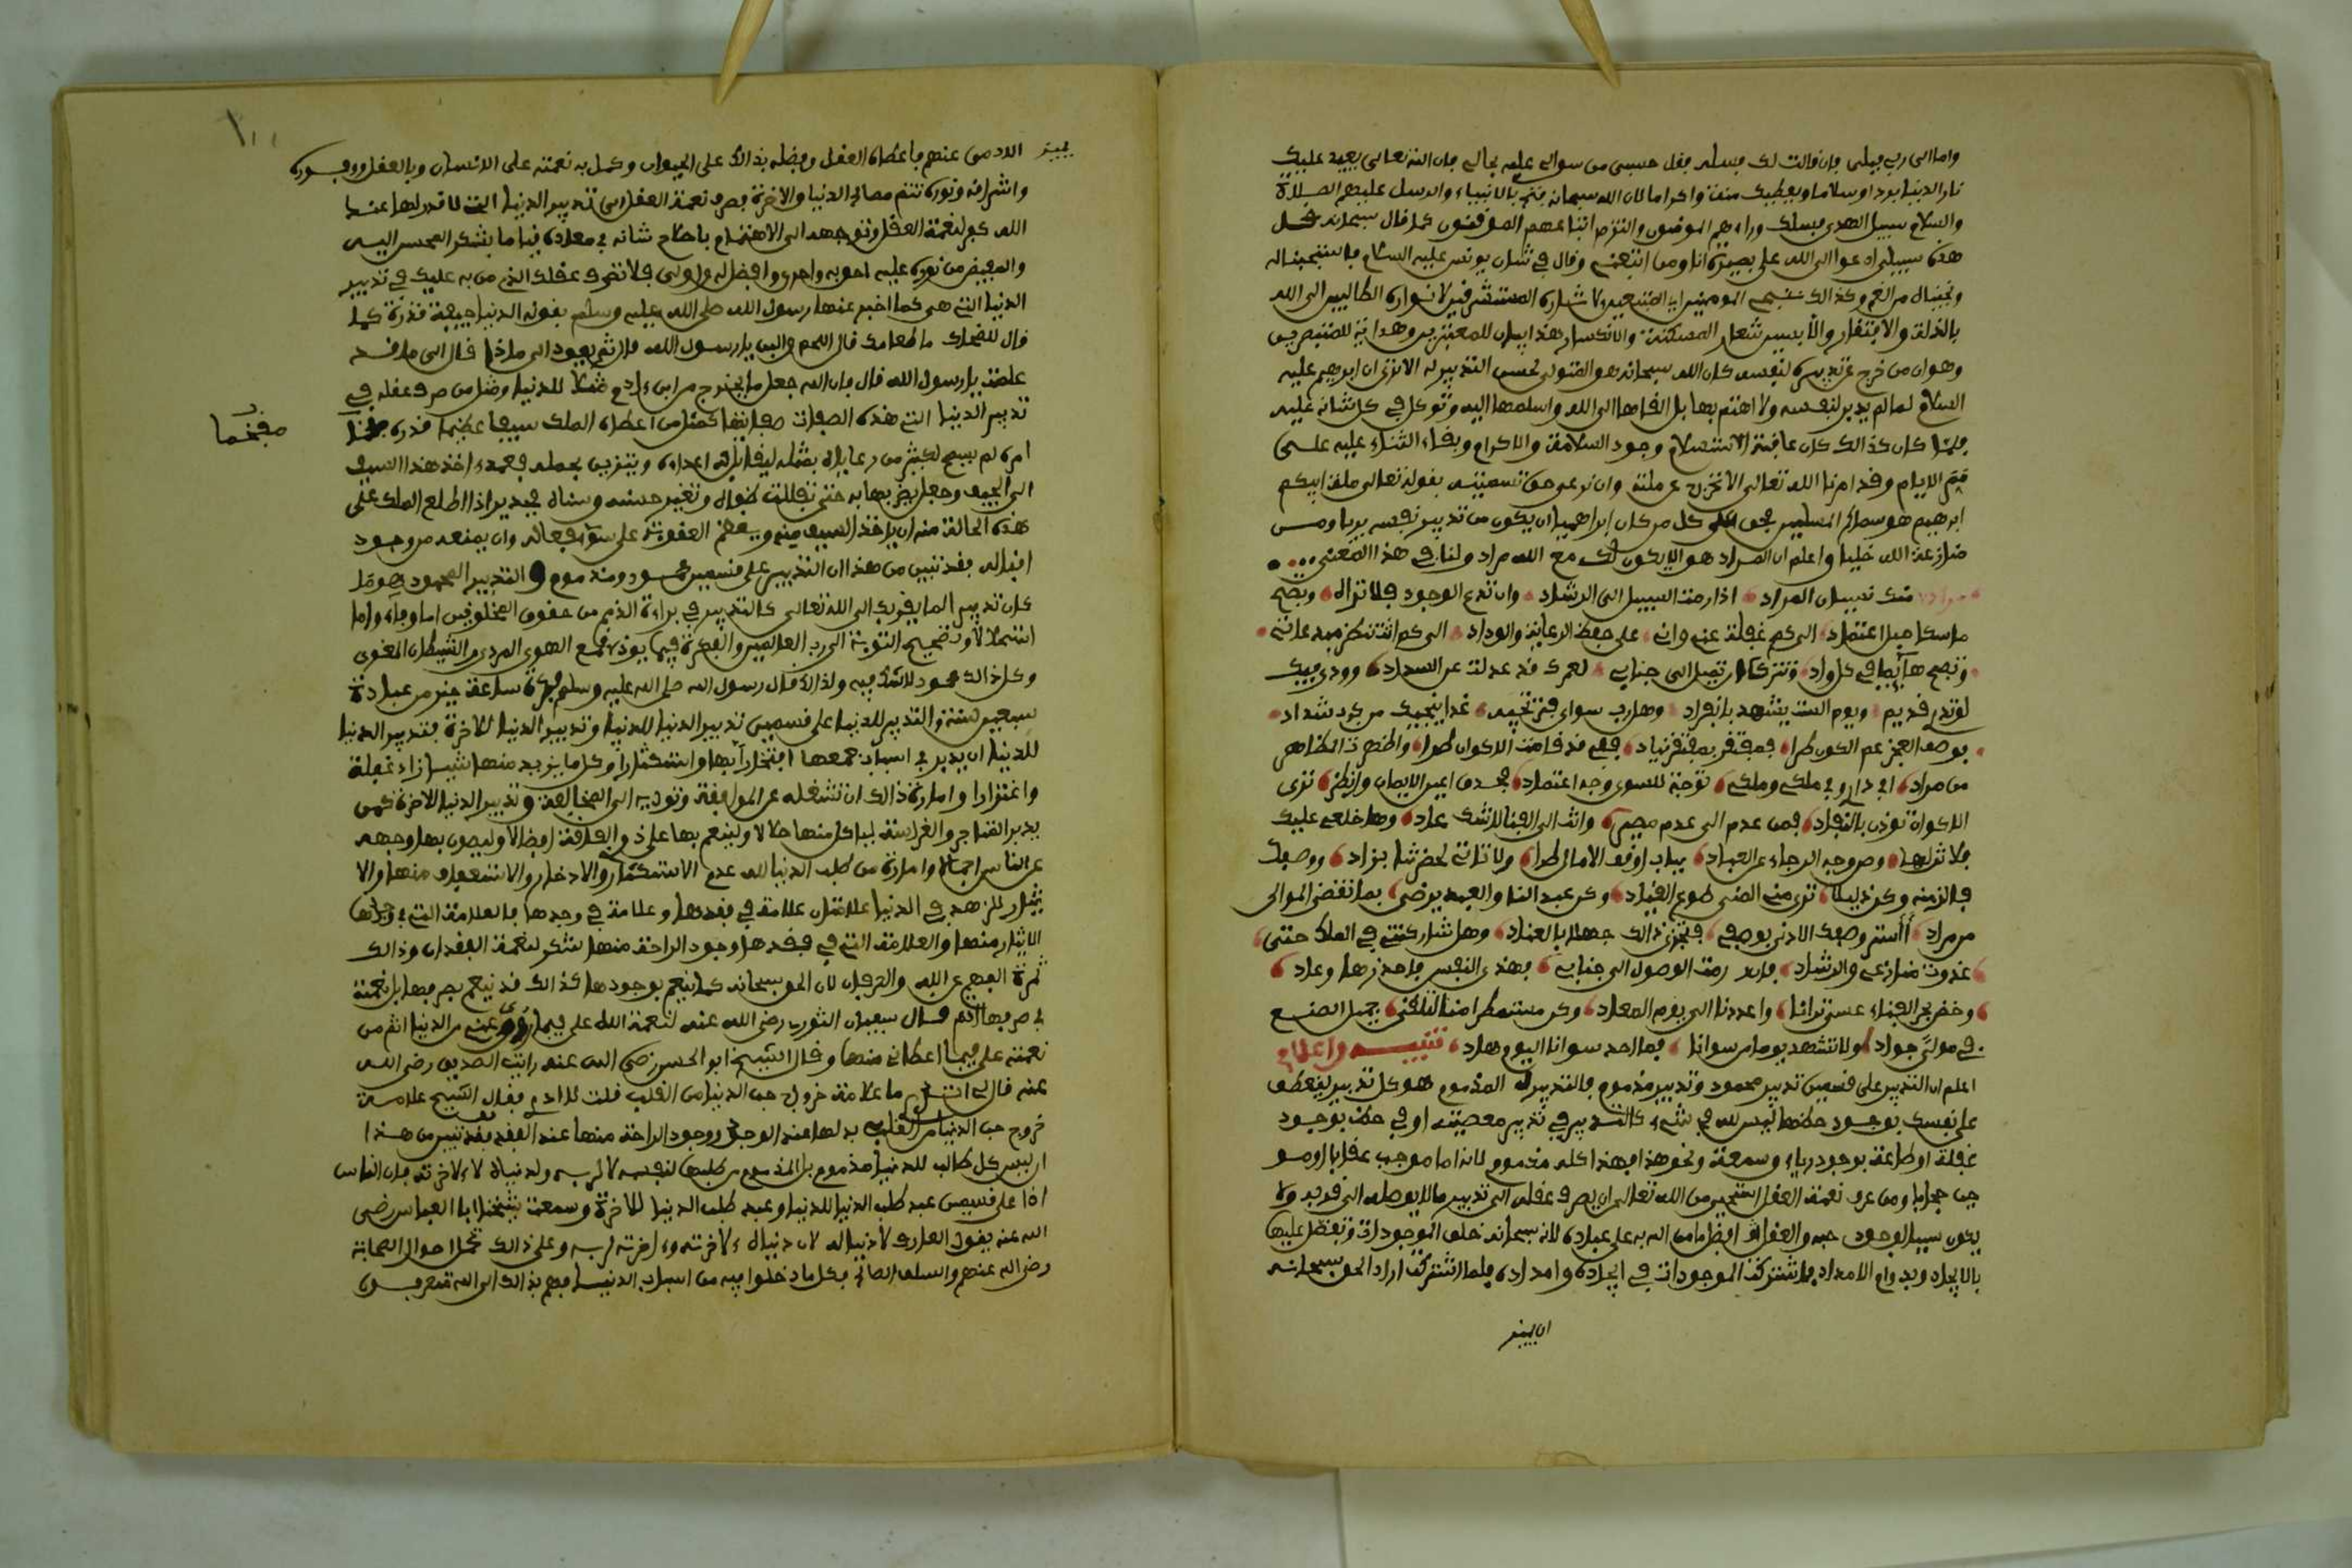 واما الى ربي فبلى فان قالت لك فسله فقل حسبي من سوالي علمه بحالي فان الله تعالى يعيد عليك
نار الدنيا بردا وسلاما ويعطيك منة واكراما لان الله سبحانه فتح بالانبياء والرسل عليهم الصلاة
والسلام سبيل الهدى فسلك وراءهم المومنون والتزم اتباعهم الموقنون كما قال سبحانه قل
هذه سبيلي ادعوا الى الله على بصيرة انا ومن اتبعني وقال في شان يونس عليه السلام فاستجبنا له
ونجيناه من الغم وكذالك ننجي المومنين اي المتبعين لاثاره المستشرقين لانواره الطالبين الى الله
بالذلة والافتقار والابسين شعار المسكنة والانكسار هذا بيان للمعتبرين وهداية للمتبصرين
وهو ان من خرج عن تدبيره لنفسه كان الله سبحانه هو المتولي لحسن التدبير له الا ترى ان ابرهيم عليه
السلام لما لم يدبر لنفسه ولا اهتم بها بل القاها الى الله واسلمها اليه وتوكل في كل شانه عليه
فلما كان كذالك كان عاقبة الاستسلام وجود السلامة والاكرام وبقاء الثناء عليه على
ممر الايام وقد امرنا الله تعالى الا نخرج عن ملته وان نرعى حق تسميته بقوله تعالى ملة ابيكم
ابرهيم هو سماكم المسلمين فحق على كل من كان ابراهيميا ان يكون من تدبير نفسه بريا ومن
منازعة الله خليا واعلم ان المراد هو الا يكون لك مع الله مراد ولنا في هذا المعنى
مرادي منك نسيان المراد اذا رمت السبيل الى الرشاد وان تدع الوجود فلا تراه وتصبح
ماسكا حبل اعتماد الى كم غفلة عني واني على حفظ الرعاية والوداد الى كم انت تنظر مبدعاتي
وتصبح هائما في كل واد وتترك ان تميل الى جنابي لعمرك قد عدلت عن السداد وودي فيك
لو تدري قديم ويوم الست يشهد بانفراد وهل رب سواي فترتجيه غدا ينجيك من كرب شداد
بوصف العجز عم الكون طرا فمفتقر بمفتقر ينادي فبي قد قامت الاكوان طرا واظهرت المظاهر
من مراد افي داري وفي ملكي وملكي توجه للسوى وجه اعتماد فحدق اعين الايمان وانظر ترى
الاكوان توذن بالنفاد فمن عدم الى عدم مصير وانت الى الفنا لا شك غاد وها خلعي عليك
فلا تزلها وصن وجه الرجاء عن العباد ببابي اوقف الامال طرا ولا تاتي لحضرتنا بزاد ووصفك
فالزمنه وكن ذليلا ترى مني المنى طوع القياد وكن عبدا لنا والعبد يرضى بما تقضي الموالي
من مراد أأستر وصفك الادنى بوصفي فتجزي ذالك جهلا بالعناد وهل شاركتني في الملك حتى
غدوت منازعي والرشاد فان رمت الوصول الى جنابي فهذي النفس فاحذرها وعاد
وخض بحر الفناء عسى ترانا واعددنا الى يوم المعاد وكن مستمطرا منا لتلقى جميل الصنع
في مولى جواد ولا تشهد يوما من سوانا فما احد سوانا اليوم هاد تنبيه واعلام
اعلم ان التدبير على قسمين تدبير محمود وتدبير مذموم فالتدبير المذموم هو كل تدبير ينعطف
على نفسك بوجود حظها ليس لله في شيء كالتدبير في تدبير معصية او في حظ بوجود
غفلة او طاعة بوجود رياء وسمعة ونحو هذا فهذا كله مذموم لانه اما موجب عقابا او موجب
حجابا ومن عرف نعمة العقل استحيى من الله تعالى ان يصرف عقله الى تدبير ما لا يوصله الى قربه ولا
يكون سببا لوجود حبه والعقل افضل ما من الله به على عباده لانه سبحانه خلق الموجودات وتفضل عليها
بالايجاد وبدوام الامداد فاشتركت الموجودات في ايجاده وامداده فلما اشتركت اراد الحق سبحانه
ان يميز
يميز الادمي عنهم باعطاء العقل وفضله بذالك على الحيوان وكمل به نعمته على الانسان وبالعقل ووفوره
واشراقه ونوره تتم مصالح الدنيا والاخرة فصرف نعمة العقل الى تدبير الدنيا التي لا قدر لها عند
الله كفر لنعمة العقل وتوجهه الى الاهتمام باصلاح شانه في معاده قياما بشكر المحسن اليه
والمفيض من نوره عليه احق به واحرى وافضل له واولى فلا تصرف عقلك الذي من به عليك في تدبير
الدنيا التي هي كما اخبر عنها رسول الله صلى الله عليه وسلم بقوله الدنيا جيفة قذرة كما
قال للضحاك ما طعامك قال اللحم واللبن يا رسول الله قال ثم يعود الى ماذا قال الى ما قد
علمت يا رسول الله قال فان الله جعل ما يخرج من ابن ءادم مثلا للدنيا ومثل من صرف عقله في
تدبير الدنيا التي هذه الصفات صفاتها كمثل من اعطاه الملك سيفا عظيما قدره
مفخما
امره لم يسمح لكثير من رعاياه بمثله ليقاتل به اعداءه ويتزين بحمله فعمد ءاخذ هذا السيف
الى الجيف وجعل يضربها به حتى تفللت ظباه وتغير حسنه وسناه فجدير اذا اطلع الملك على
هذه الحالة منه ان ياخذ السيف منه ويعظم العقوبة على سوء فعاله وان يمنعه من وجود
اقباله فقد تبين من هذا ان التدبير على قسمين محمود ومذموم والتدبير المحمود هو ما
كان تدبيرا لما يقربك الى الله تعالى كالتدبير في براءة الذمم من حقوق المخلوقين اما وفاء واما
استحلالا وتصحيح التوبة الى رب العالمين والفكرة فيما يوذي قمع الهوى المردي والشيطان المغوي
وكل ذالك محمود لا شك فيه ولذالك قال رسول الله صلى الله عليه وسلم فكرة ساعة خير من عبادة
سبعين سنة والتدبير للدنيا على قسمين تدبير الدنيا للدنيا وتدبير الدنيا للاخرة فتدبير الدنيا
للدنيا ان يدبر في اسباب جمعها افتخارا بها واستكثارا وكل ما يزيد منها شيئا زاد غفلة
واغترارا وامارة ذالك ان تشغله عن الموافقة وتوديه الى المخالفة وتدبير الدنيا للاخرة كمن
يدبر المتاجر والغراسة لياكل منها حلالا ولينعم بها على ذوي الفاقة افضالا وليصون بها وجهه
عن الناس اجمالا وامارة من طلب الدنيا لله عدم الاستكثار والادخار والاستعفاف منها والا
يثار للزهد في الدنيا علامتان علامة في فقدها وعلامة في وجدها فالعلامة التي في وجدها
الايثار منها والعلامة التي في فقدها وجود الراحة منها شكر لنعمة الفقدان وذالك
ثمرة الفهم عن الله والعرفان لان الحق سبحانه كما ينعم بوجودها كذالك قد ينعم بصرفها بل نعمته
في صرفها اتم قال سفيان الثوري رضي الله عنه لنعمة الله علي فيما زوى عني من الدنيا اتم من
نعمته علي فيما اعطاني منها وقال الشيخ ابو الحسن رضي الله عنه رايت الصديق رضي الله
عنه قال لي اتدري ما علامة خروج حب الدنيا من القلب قلت لا ادري فقال الشيخ علامة
خروج حب الدنيا من القلب بذلها عند الوجد ووجود الراحة منها عند الفقد فقد تبين من هذا
ان ليس كل طالب للدنيا مذموم بل المذموم من طلبها لنفسه لا لربه ولدنياه لا لاخرته فان الناس
اذا على قسمين عبد طلب الدنيا للدنيا وعبد طلب الدنيا للاخرة وسمعت شيخنا ابا العباس رضي
الله عنه يقول العارف لا دنيا له لان دنياه لاخرته وءاخرته لربه وعلى ذالك تحمل احوال الصحابة
رضي الله عنهم والسلف الصالح فكل ما دخلوا فيه من اسباب الدنيا فهم بذالك الى الله متقربون